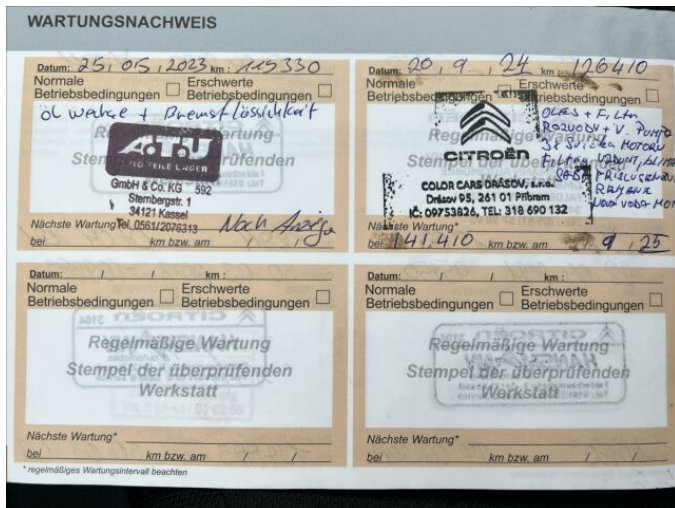 WARTUNGSNACHWEIS
Datum: 25, 05, 2023 km: 119330
Normale Betriebsbedingungen Erschwerte Betriebsbedingungen
öl + Bremsflüssichkeit
Regelmäßige Wartung
Stempel der überprüfenden
A.T.U
GmbH & Co. KG 592
Sternbergstr. 1
34121 Kassel
Tel. 0561/2076313
Nächste Wartung* Nach Anzeige
bei km bzw. am / /
Datum: 20, 9, 24 km 126410
Normale Betriebsbedingungen Erschwerte Betriebsbedingungen
OLEJ + FILTR
ROZVODY + V. PUMPA
3x SVÍČKA MOTORU
Regelmäßige Wartung
CITROËN
COLOR CARS DRÁSOV, s.r.o.
Drásov 95, 261 01 Příbram
IČ: 09753826, TEL: 318 690 132
Nächste Wartung*
bei 141.410 km bzw. am 9, 25
Datum: / / km :
Normale Betriebsbedingungen Erschwerte Betriebsbedingungen
Regelmäßige Wartung
Stempel der überprüfenden
Werkstatt
Nächste Wartung*
bei km bzw. am / /
Datum: / / km :
Normale Betriebsbedingungen Erschwerte Betriebsbedingungen
Regelmäßige Wartung
Stempel der überprüfenden
Werkstatt
Nächste Wartung*
bei km bzw. am / /
* regelmäßiges Wartungsintervall beachten